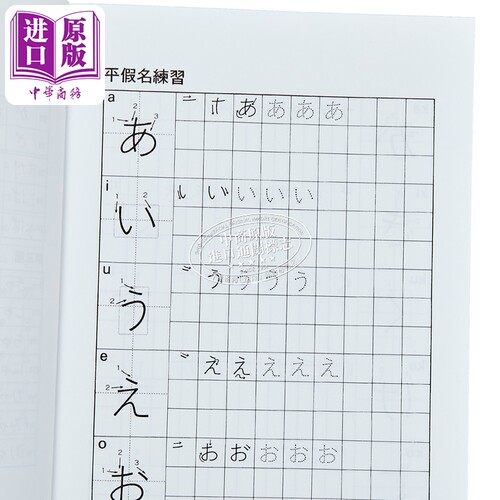 进口
原版
中华商务
平假名練習
a
1 2 3
あ
あ あ あ あ
i
1 2
い
い い い い
u
1
2
う
う う う う
e
1
2
え
え え え え え
o
1 2 3
お
お お お お お